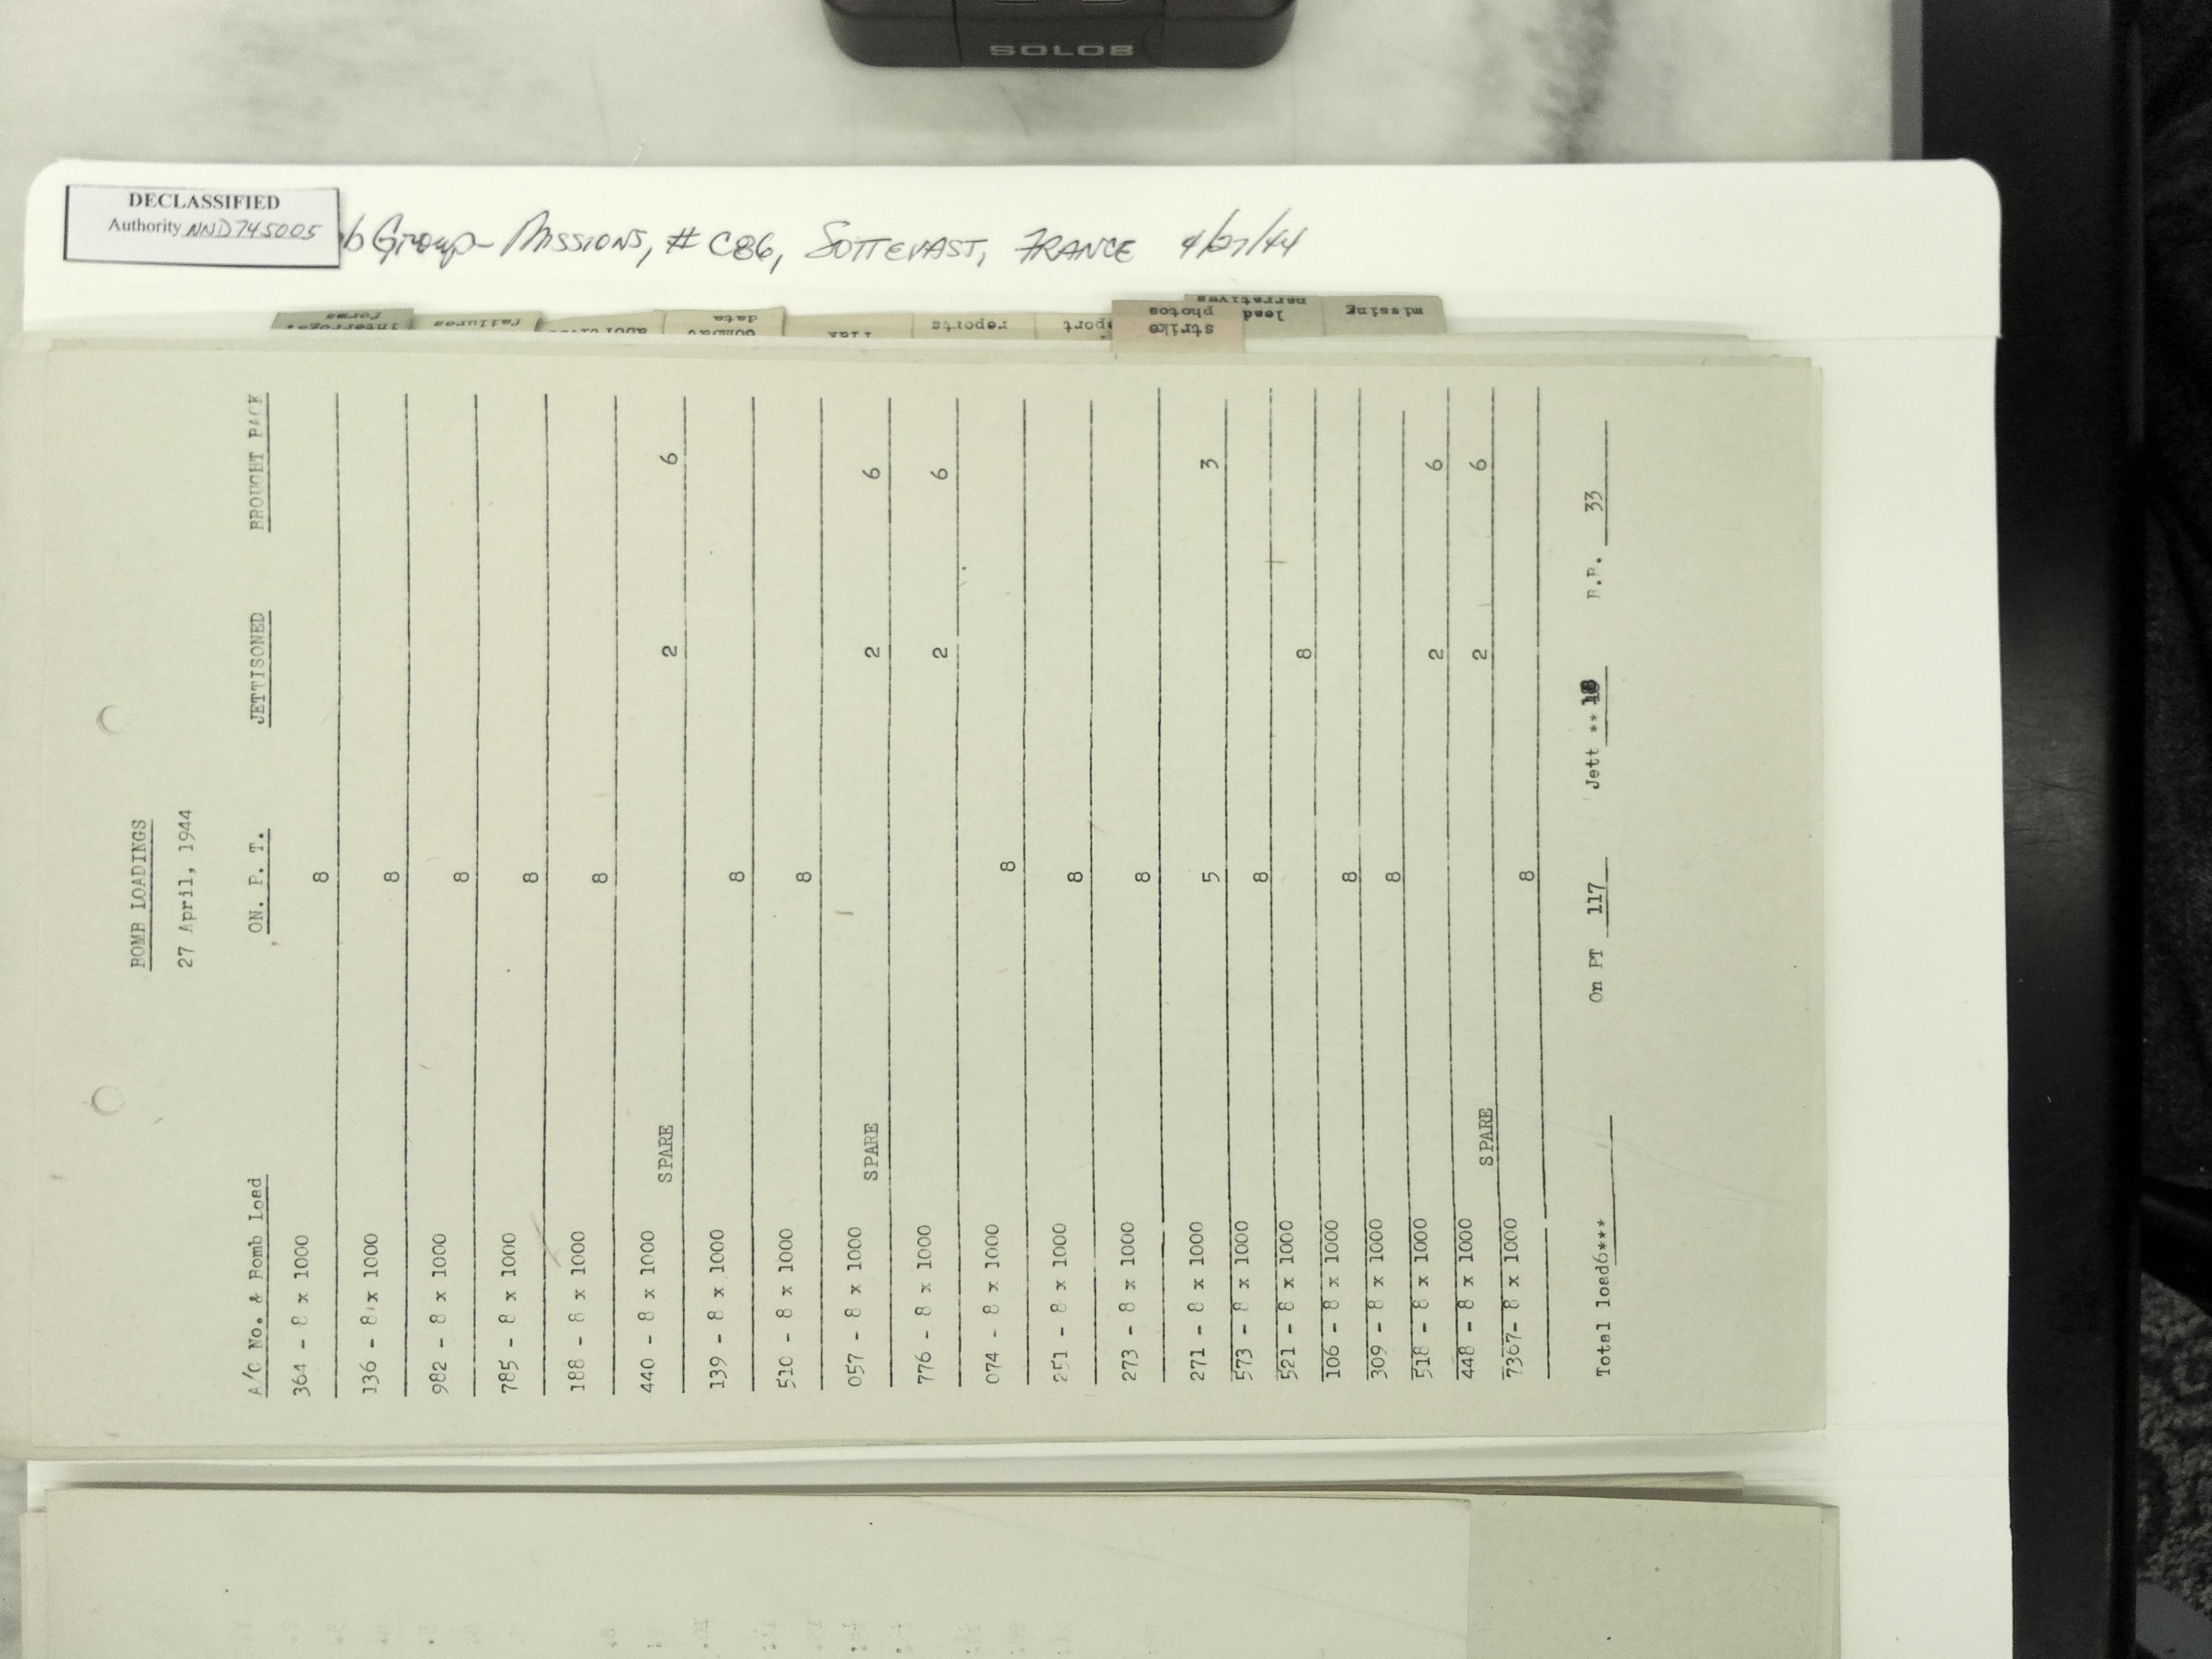 SOLOS
DECLASSIFIED
Authority NND745005
Group - Missions, # C86, SOTTEVAST, FRANCE 4/27/44
interrogat forms
failures
combat data
flak
reports
strike photos
lead narratives
missing
BOMB LOADINGS
27 April, 1944
A/C No. & Bomb Load ON. P. T. JETTISONED BROUGHT BACK
364 - 8 x 1000 8
136 - 8 x 1000 8
982 - 8 x 1000 8
785 - 8 x 1000 8
188 - 8 x 1000 8
440 - 8 x 1000 SPARE 2 6
139 - 8 x 1000 8
510 - 8 x 1000 8
057 - 8 x 1000 SPARE 2 6
776 - 8 x 1000 2 6
074 - 8 x 1000 8
251 - 8 x 1000 8
273 - 8 x 1000 8
271 - 8 x 1000 5 3
573 - 8 x 1000 8
521 - 8 x 1000 8
106 - 8 x 1000 8
309 - 8 x 1000 8
518 - 8 x 1000 2 6
448 - 8 x 1000 SPARE 2 6
7367- 8 x 1000 8
Total load6*** On PT 117 Jett ** 18 B.B. 33